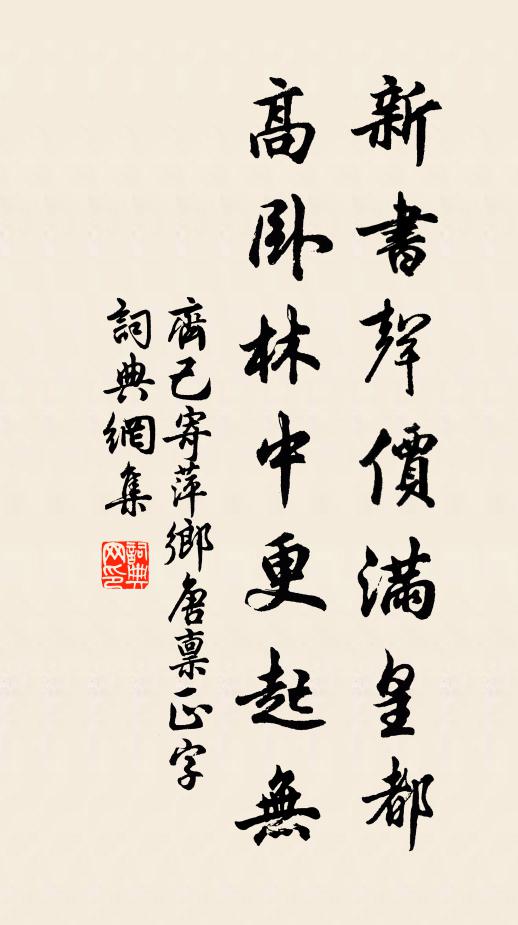 新書聲價滿皇都
高臥林中更起無
齊己寄萍鄉唐稟正字
詞典網集
詞典网印